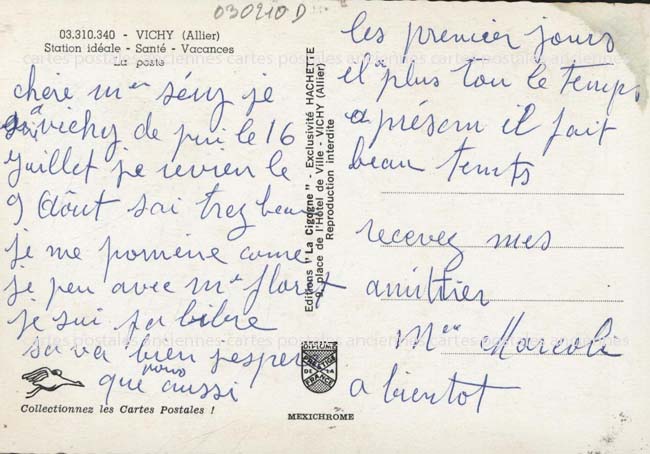 030210D
03.310.340 - VICHY (Allier)
Station idéale - Santé - Vacances
La poste
chère mer Sény je
a vichy de pui le 16
juillet je revien le
9 Août sai trez beau
je me pomène come
je peu avec me floret
je sui pa libre
sa va bien j'esper
que vous aussi
Collectionnez les Cartes Postales !
Editions "La Cigogne" - Exclusivité HACHETTE
9, place de l'Hôtel de Ville - VICHY (Allier)
Reproduction interdite
MEXICHROME
les premier jours
il a plus tou le temp
a présen il fait
beau temts
recevez mes
amittier
Mer Marcole
a bientot
cartes postales anciennes cartes postales anciennes cartes postales anciennes